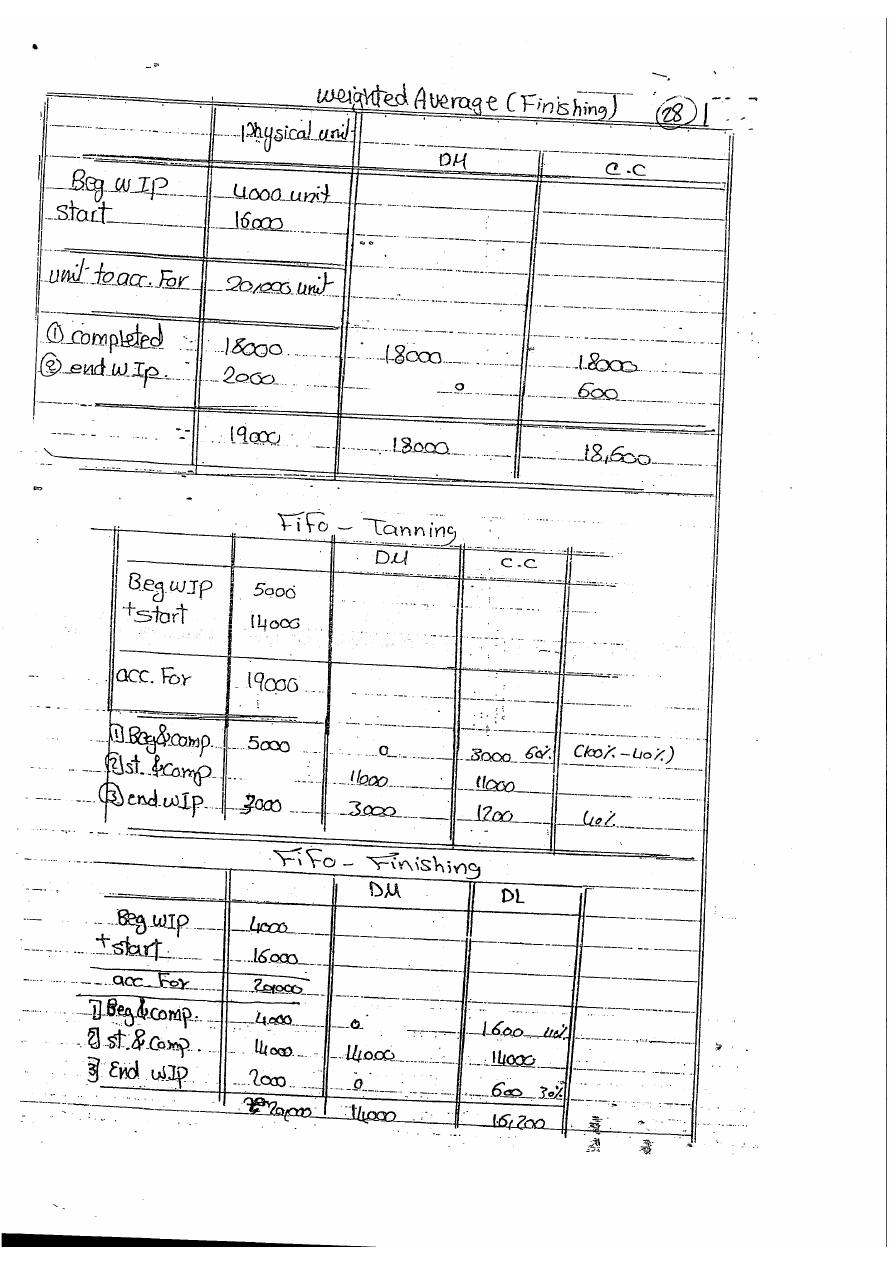 Weighted Average (Finishing) 28
Physical unit DM C.C
Beg WIP 4000 unit
start 16000
unit to acc. For 20,000 unit
① completed 18000 18000 18000
② end WIP. 2000 0 600
19000 18000 18,600
FiFo - Tanning
DM C.C
Beg WIP 5000
+start 14000
acc. For 19000
1 Beg&comp 5000 0 3000 60% (100%-40%)
2 st. &comp 11000 11000
3 end WIP 3000 3000 1200 40%
FiFo - Finishing
DM DL
Beg WIP 4000
+start 16000
acc For 20,000
1 Beg&comp. 4000 0 1600 40%
2 st.&comp. 14000 14000 14000
3 End WIP 2000 0 600 30%
20,000 14000 16,200